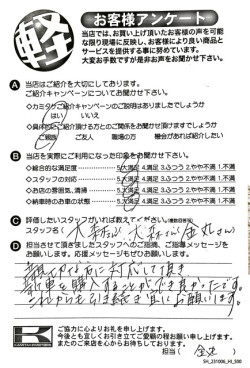 軽
お客様アンケート
当店では、お買い上げ頂いたお客様の声を可能
な限り現場に反映し、お客様により良い商品と
サービスを提供する事に努めています。
大変お手数ですが是非お声をお聞かせ下さい。
A 当店はご紹介を大切にしております。
ご紹介キャンペーンについてお聞かせ下さい。
◇カミタケご紹介キャンペーンのご説明はありましたでしょうか
はい いいえ
◇具体的にご紹介頂ける方とのご関係をお聞かせ頂けますでしょうか
ご親戚 ご友人 職場の方 機会があれば紹介したい
B 当店を実際にご利用になった印象をお聞かせ下さい。
◇総合的な満足度 5.大満足 4.満足 3.ふつう 2.やや不満 1.不満
◇スタッフの対応 5.大満足 4.満足 3.ふつう 2.やや不満 1.不満
◇お店の雰囲気、清掃 5.大満足 4.満足 3.ふつう 2.やや不満 1.不満
◇納車時のお車の状態 5.大満足 4.満足 3.ふつう 2.やや不満 1.不満
C 評価したいスタッフがいれば教えてください。(複数回答可)
スタッフ名( 大森さん 金丸さん
D 担当させて頂きましたスタッフへのご指摘、ご指導メッセージを
お願いします。応援メッセージもぜひお願いします。
親切丁寧に対応して頂き
新車を購入することができました。です。
これからも引き続き宜しくお願いします。
K
ご協力に心よりお礼を申し上げます。
今後とも宜しくお引き立てご愛顧の程お願い申し上げます。
またのご来店を心からお待ちしております。
担当( 金丸 )
SH_231006_HI_500